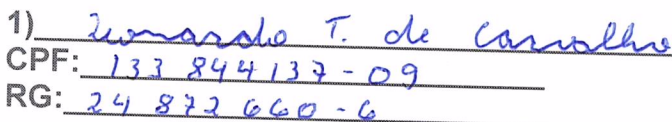 1) Leonardo T. de Carvalho
CPF: 133 844 137-09
RG: 24 872 660-6